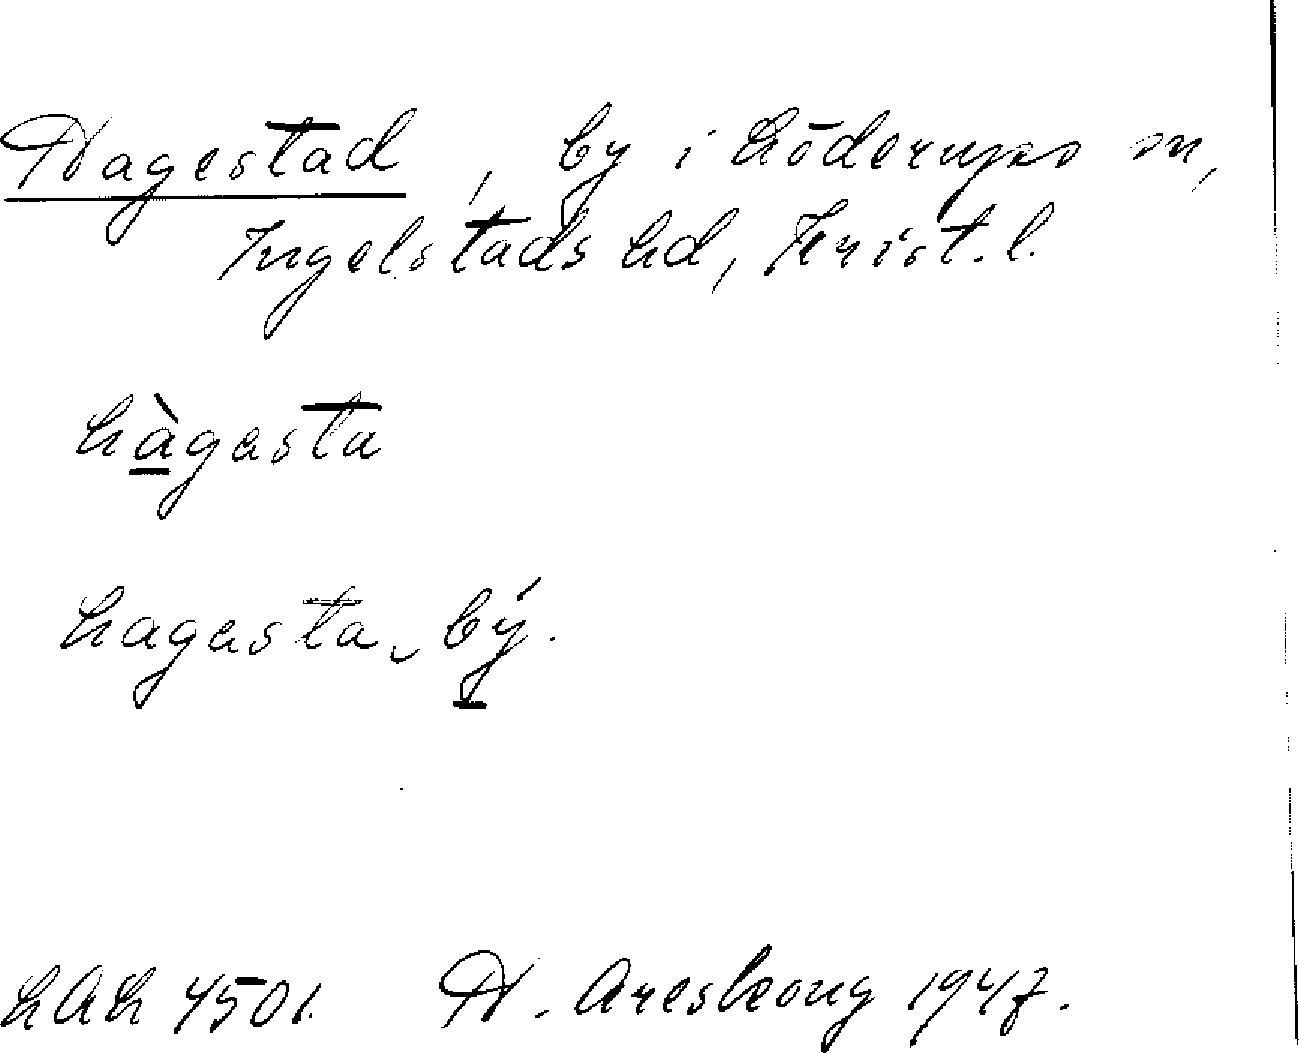 Hagestad, by i Löderups sn,
Ingelstads hd, Krist. l.
hàgasta
hagasta, bý.
LAL 4501. H. Areskoug 1947.